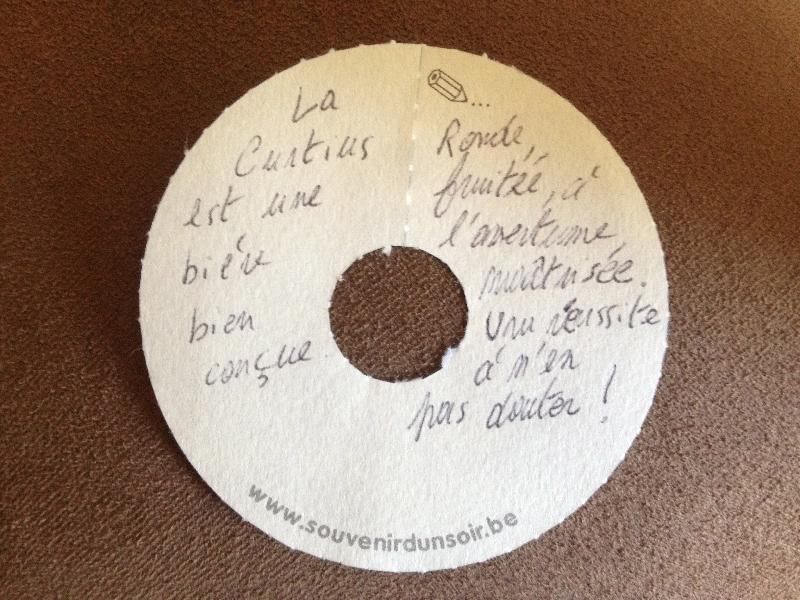 La
Curtius
est une
bière
bien
conçue.
...
Ronde,
fruitée, à
l'amertume
maîtrisée.
Une réussite
à n'en
pas douter !
www.souvenirdunsoir.be